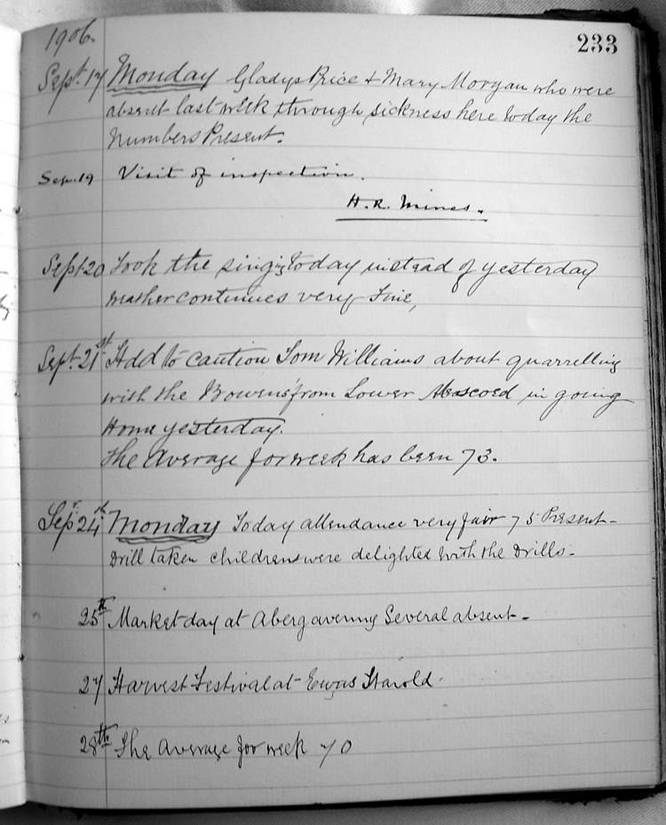 1906.
233
Sept. 17 Monday Gladys Price & Mary Morgan who were
absent last week through sickness here today the
Numbers Present.
Sep. 19 Visit of inspection.
H. R. Mines.
Sept 20 Took the singg today instead of yesterday
weather continues very Fine,
Sept. 21st Had to caution Tom Williams about quarrelling
with the Bowens from Lower in going
Home yesterday.
The Average for week has been 73.
Sept 24th Monday Today attendance very fair 75 Present -
Drill taken children were delighted with the Drills -
25th Market day at Abergavenny Several absent -
27 Harvest Festival at Ewyas Harold
28th The Average for week 70